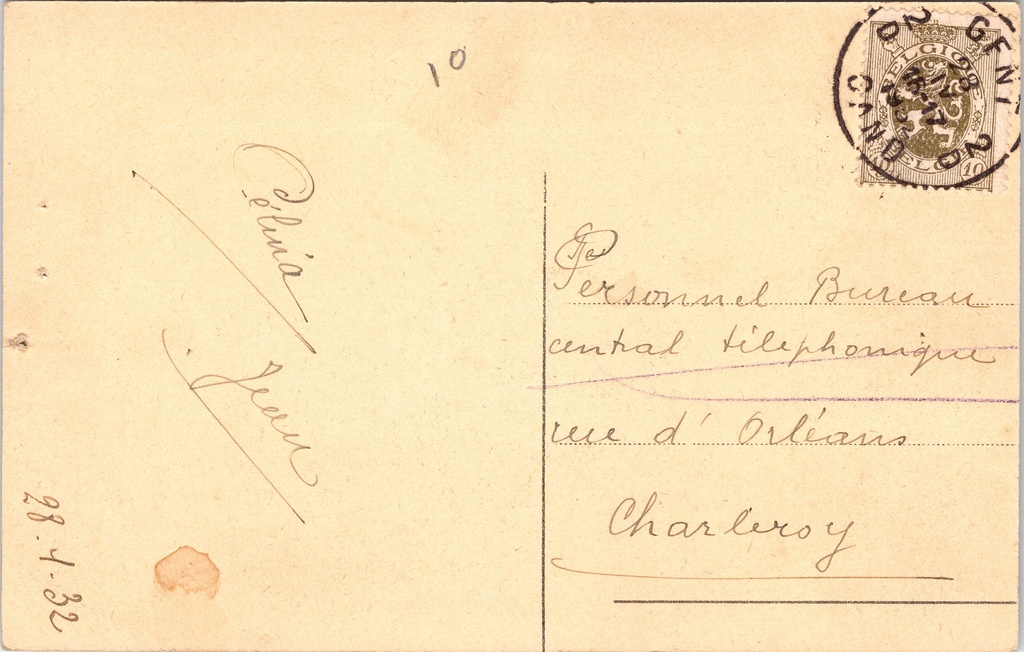 10
Célina
Jean
28-1-32
GENT 2
GAND 2
28
16-17
BELGIQUE
BELGIË
10
Personnel Bureau
central téléphonique
rue d'Orléans
Charleroy